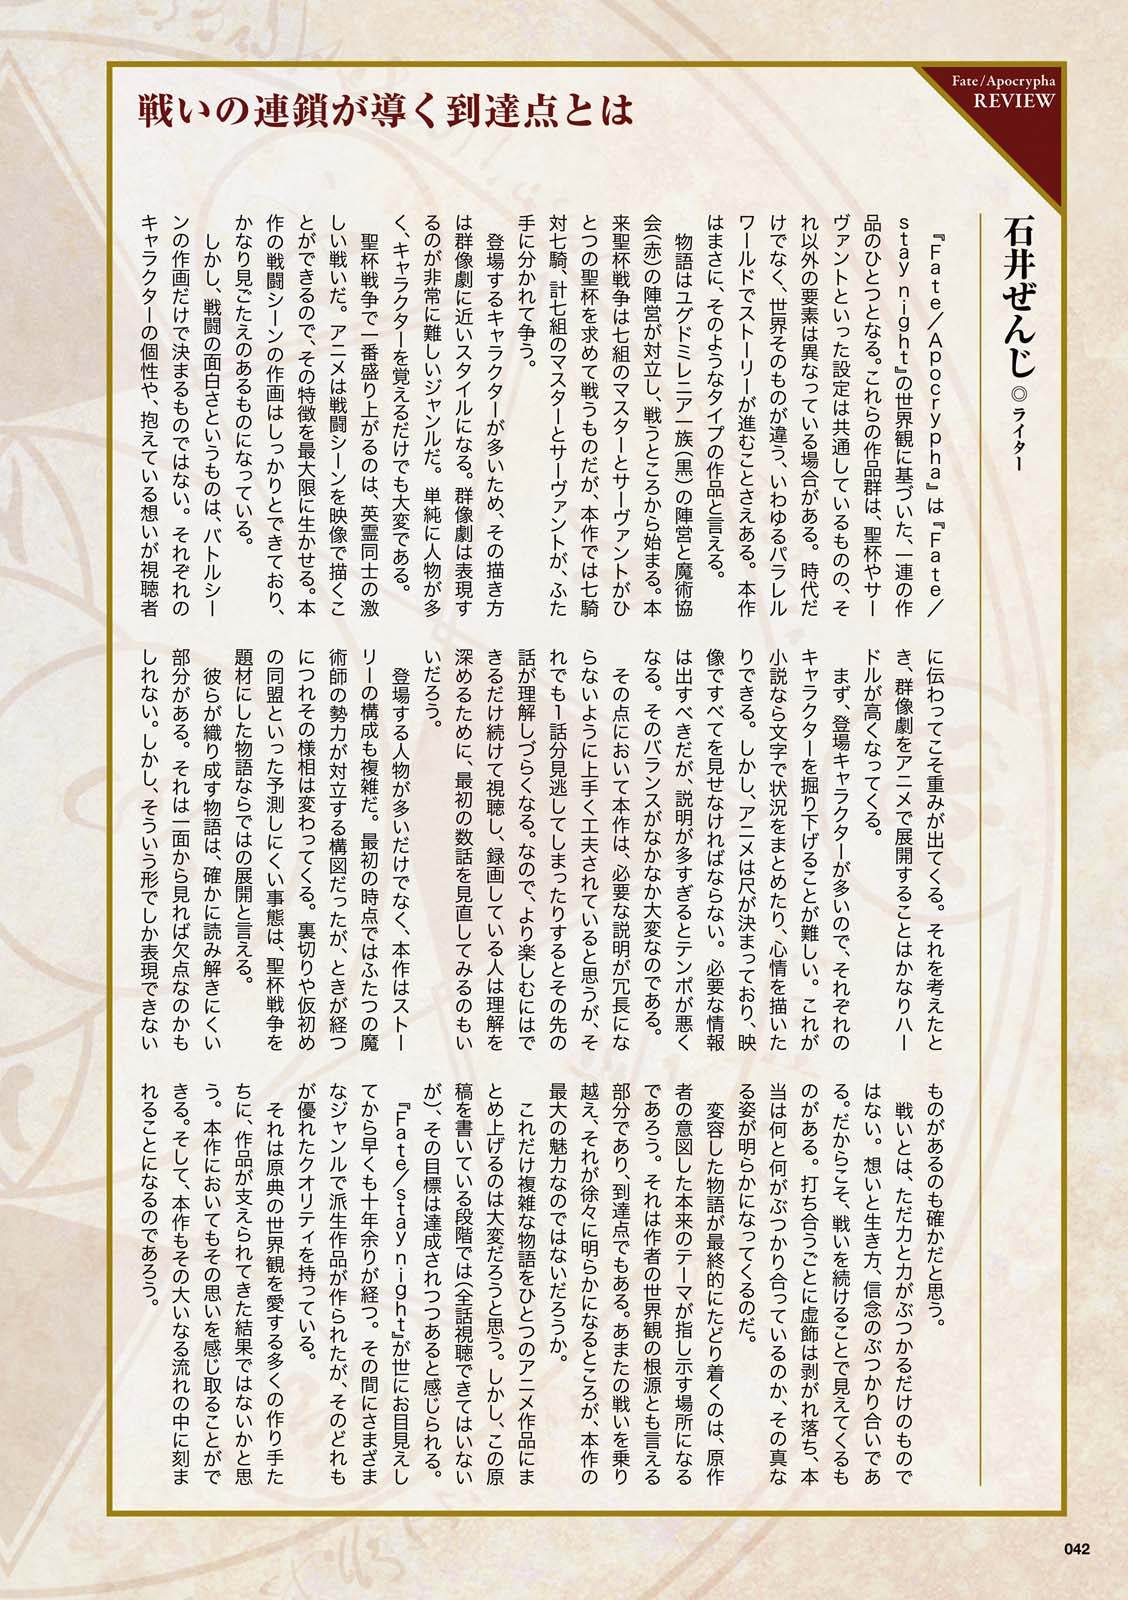 Fate/Apocrypha
REVIEW
戦いの連鎖が導く到達点とは
石井ぜんじ◎ライター
『Fate／Apocrypha』は『Fate／
stay night』の世界観に基づいた、一連の作
品のひとつとなる。これらの作品群は、聖杯やサー
ヴァントといった設定は共通しているものの、そ
れ以外の要素は異なっている場合がある。時代だ
けでなく、世界そのものが違う、いわゆるパラレル
ワールドでストーリーが進むことさえある。本作
はまさに、そのようなタイプの作品と言える。
物語はユグドミレニア一族（黒）の陣営と魔術協
会（赤）の陣営が対立し、戦うところから始まる。本
来聖杯戦争は七組のマスターとサーヴァントがひ
とつの聖杯を求めて戦うものだが、本作では七騎
対七騎、計七組のマスターとサーヴァントが、ふた
手に分かれて争う。
登場するキャラクターが多いため、その描き方
は群像劇に近いスタイルになる。群像劇は表現す
るのが非常に難しいジャンルだ。単純に人物が多
く、キャラクターを覚えるだけでも大変である。
聖杯戦争で一番盛り上がるのは、英霊同士の激
しい戦いだ。アニメは戦闘シーンを映像で描くこ
とができるので、その特徴を最大限に生かせる。本
作の戦闘シーンの作画はしっかりとできており、
かなり見ごたえのあるものになっている。
しかし、戦闘の面白さというものは、バトルシー
ンの作画だけで決まるものではない。それぞれの
キャラクターの個性や、抱えている想いが視聴者
に伝わってこそ重みが出てくる。それを考えたと
き、群像劇をアニメで展開することはかなりハー
ドルが高くなってくる。
まず、登場キャラクターが多いので、それぞれの
キャラクターを掘り下げることが難しい。これが
小説なら文字で状況をまとめたり、心情を描いた
りできる。しかし、アニメは尺が決まっており、映
像ですべてを見せなければならない。必要な情報
は出すべきだが、説明が多すぎるとテンポが悪く
なる。そのバランスがなかなか大変なのである。
その点において本作は、必要な説明が冗長にな
らないように上手く工夫されていると思うが、そ
れでも1話分見逃してしまったりするとその先の
話が理解しづらくなる。なので、より楽しむにはで
きるだけ続けて視聴し、録画している人は理解を
深めるために、最初の数話を見直してみるのもい
いだろう。
登場する人物が多いだけでなく、本作はストー
リーの構成も複雑だ。最初の時点ではふたつの魔
術師の勢力が対立する構図だったが、ときが経つ
につれその様相は変わってくる。裏切りや仮初め
の同盟といった予測しにくい事態は、聖杯戦争を
題材にした物語ならではの展開と言える。
彼らが織り成す物語は、確かに読み解きにくい
部分がある。それは一面から見れば欠点なのかも
しれない。しかし、そういう形でしか表現できない
ものがあるのも確かだと思う。
戦いとは、ただ力と力がぶつかるだけのもので
はない。想いと生き方、信念のぶつかり合いであ
る。だからこそ、戦いを続けることで見えてくるも
のがある。打ち合うごとに虚飾は剥がれ落ち、本
当は何と何がぶつかり合っているのか、その真な
る姿が明らかになってくるのだ。
変容した物語が最終的にたどり着くのは、原作
者の意図した本来のテーマが指し示す場所になる
であろう。それは作者の世界観の根源とも言える
部分であり、到達点でもある。あまたの戦いを乗り
越え、それが徐々に明らかになるところが、本作の
最大の魅力なのではないだろうか。
これだけ複雑な物語をひとつのアニメ作品にま
とめ上げるのは大変だろうと思う。しかし、この原
稿を書いている段階では（全話視聴できてはいない
が）、その目標は達成されつつあると感じられる。
『Fate／stay night』が世にお目見えし
てから早くも十年余りが経つ。その間にさまざま
なジャンルで派生作品が作られたが、そのどれも
が優れたクオリティを持っている。
それは原典の世界観を愛する多くの作り手た
ちに、作品が支えられてきた結果ではないかと思
う。本作においてもその思いを感じ取ることがで
きる。そして、本作もその大いなる流れの中に刻ま
れることになるのであろう。
042